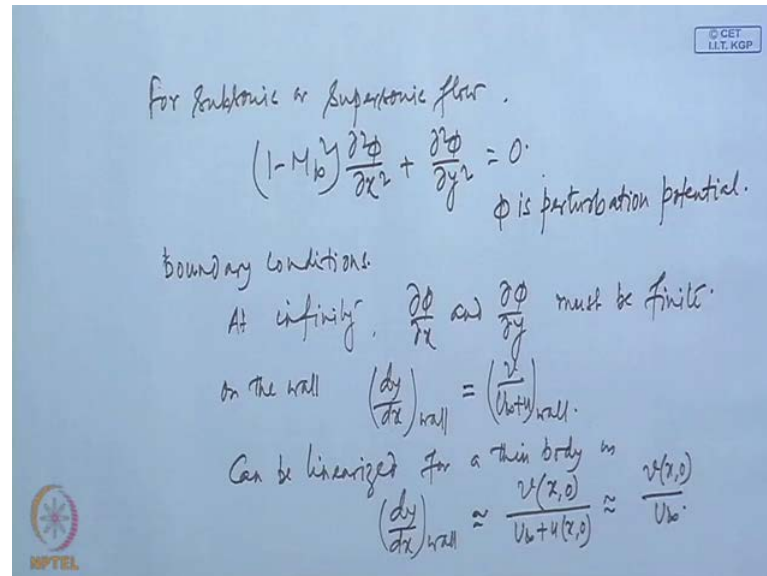 © CET
I.I.T. KGP
For Subsonic or Supersonic flow.
(1-M∞²) ∂²φ/∂x² + ∂²φ/∂y² = 0.
φ is perturbation potential.
Boundary conditions.
At infinity, ∂φ/∂x and ∂φ/∂y must be finite.
on the wall (dy/dx)wall = (v/(U∞+u))wall.
Can be linearized for a thin body as
(dy/dx)wall ≈ v(x,0)/(U∞+u(x,0)) ≈ v(x,0)/U∞.
NPTEL